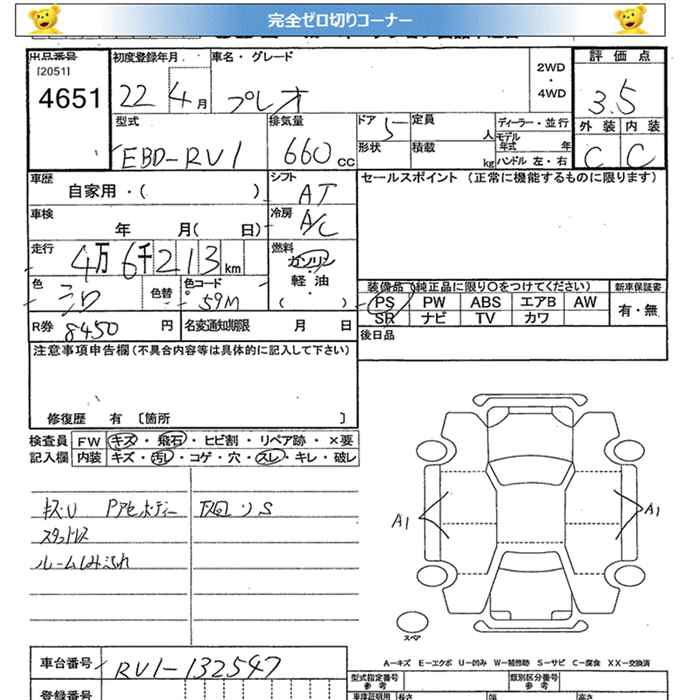 完全ゼロ切りコーナー
出品番号 初度登録年月 車名・グレード 評価点
[2051] 2WD
4651 22年 4月 プレオ ・ 3.5
4WD
型式 排気量 ドア 定員 ディーラー・並行 外装 内装
EBD-RV1 660cc 5 人 モデル年式 年 C C
形状 積載 kg ハンドル 左・右
車歴 シフト セールスポイント (正常に機能するものに限ります)
自家用・( ) AT
車検 冷房
年 月( 日) A/C
走行 燃料
4万6千213km ガソリン
・
軽油
( )
色 色替 色コード 装備品(純正品に限り〇をつけてください) 新車保証書
シロ 59M PS PW ABS エアB AW 有・無
SR ナビ TV カワ
R券 8450円 名変通知期限 月 日 後日品
注意事項申告欄(不具合内容等は具体的に記入して下さい)
修復歴 有 [箇所 ]
検査員 FW キズ・飛石・ヒビ割・リペア跡・×要
記入欄 内装 キズ・汚レ・コゲ・穴・スレ・キレ・破レ
キズU
スタッドレス
ルームしみ汚れ
A1 A1
スペア
A-キズ E-エクボ U-凹み W-補修跡 S-サビ C-腐食 XX-交換済
車台番号 RV1-132547
型式指定番号 類別区分番号
参考 参考
登録番号 車庫証明用 長さ 幅 高さ